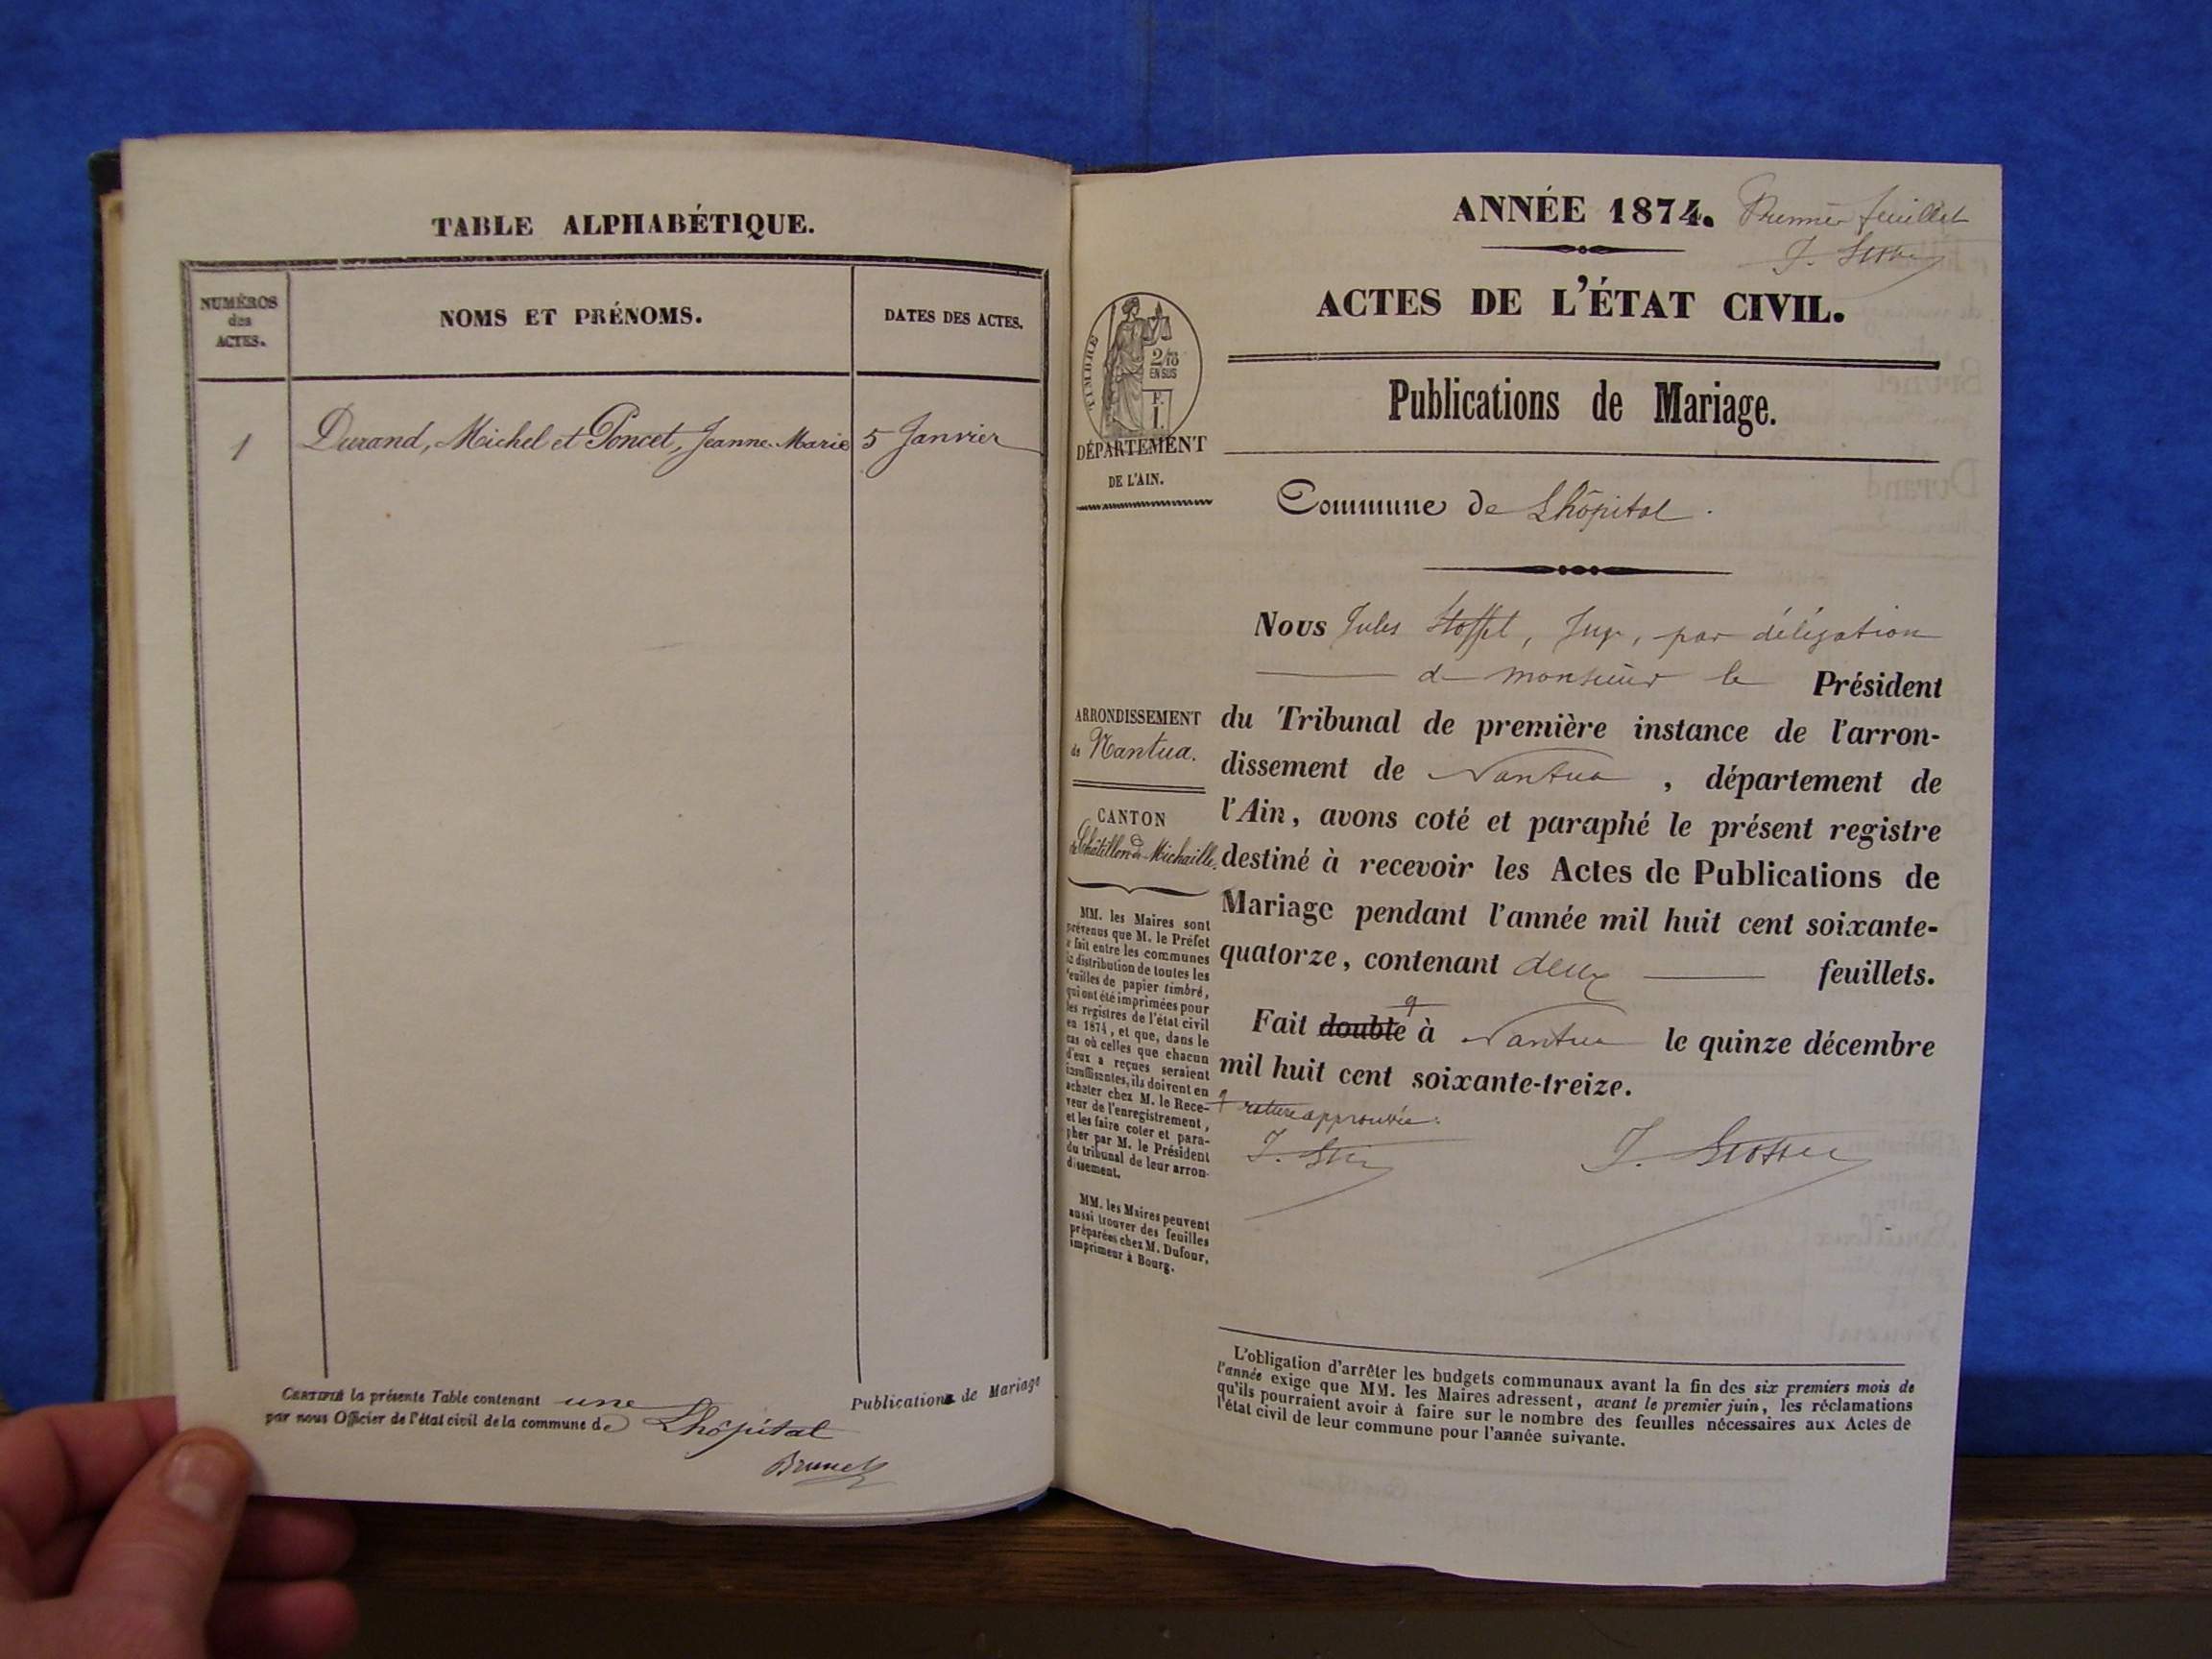 TABLE ALPHABÉTIQUE.
NUMÉROS
des
ACTES.
NOMS ET PRÉNOMS.
DATES DES ACTES.
1 Durand, Michel et Poncet, Jeanne-Marie 5 Janvier
CERTIFIÉ la présente Table contenant une
par nous Officier de l'état civil de la commune de Lhôpital
Publications de Mariage
Brunet
ANNÉE 1874. Premier feuillet
ACTES DE L'ÉTAT CIVIL.
TIMBRE
2/10
EN SUS
F.
1.
DÉPARTEMENT
DE L'AIN.
Publications de Mariage.
Commune de Lhôpital.
Nous Jules Stoffel, Juge, par délégation
de monsieur le Président
du Tribunal de première instance de l'arron-
dissement de Nantua, département de
l'Ain, avons coté et paraphé le présent registre
destiné à recevoir les Actes de Publications de
Mariage pendant l'année mil huit cent soixante-
quatorze, contenant deux feuillets.
Fait double à Nantua le quinze décembre
mil huit cent soixante-treize.
rature approuvée.
ARRONDISSEMENT
de Nantua.
CANTON
de Châtillon-de-Michaille.
MM. les Maires sont
prévenus que M. le Préfet
a fait entre les communes
la distribution de toutes les
feuilles de papier timbré,
qui ont été imprimées pour
les registres de l'état civil
en 1874, et que, dans le
cas où celles que chacun
d'eux a reçues seraient
insuffisantes, ils doivent en
acheter chez M. le Rece-
veur de l'enregistrement,
et les faire coter et para-
pher par M. le Président
du tribunal de leur arron-
dissement.
MM. les Maires peuvent
aussi trouver des feuilles
préparées chez M. Dufour,
imprimeur à Bourg.
L'obligation d'arrêter les budgets communaux avant la fin des six premiers mois de
l'année exige que MM. les Maires adressent, avant le premier juin, les réclamations
qu'ils pourraient avoir à faire sur le nombre des feuilles nécessaires aux Actes de
l'état civil de leur commune pour l'année suivante.